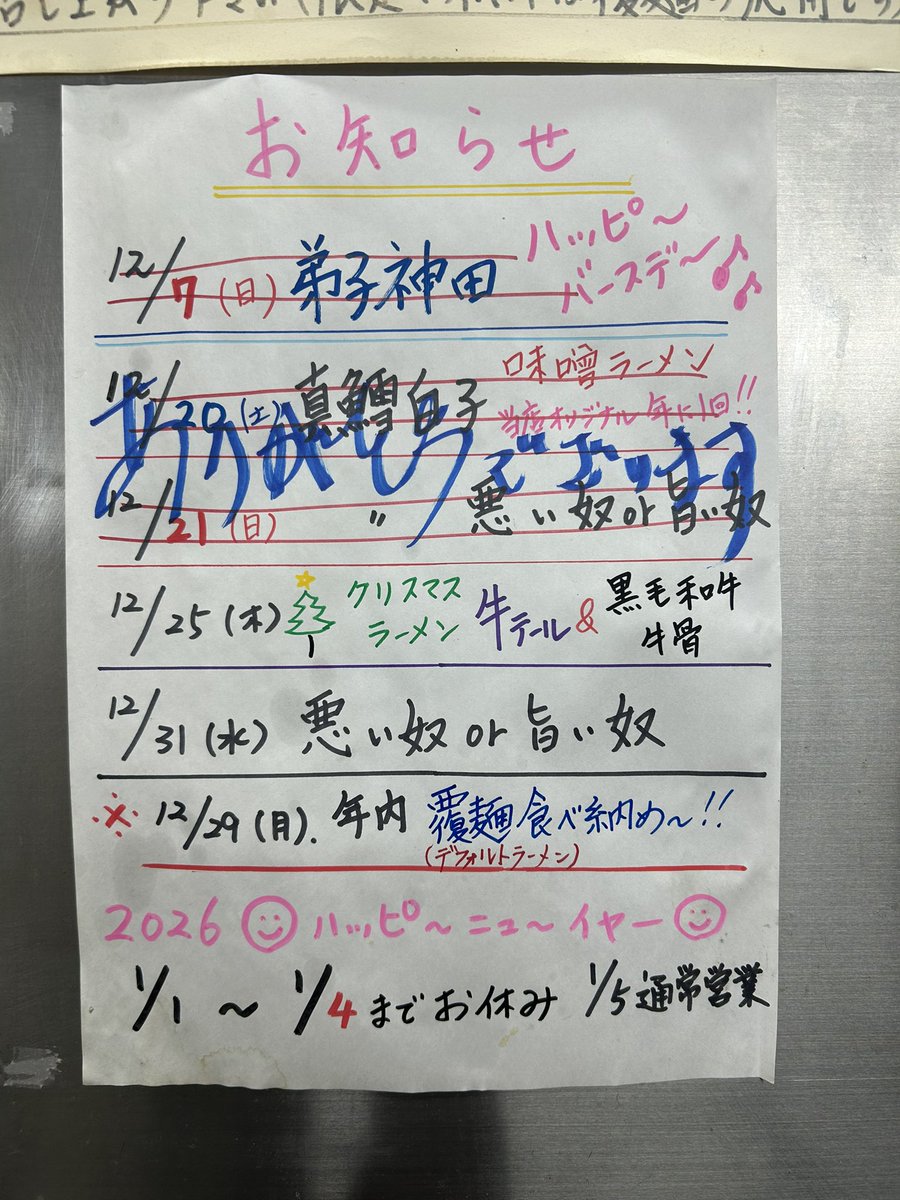 お知らせ
12/7(日) 弟子神田 ハッピ〜
バースデ〜♪♪
12/20(土) 真鱈白子 味噌ラーメン
当店オリジナル年に1回!!
ありがとうございます
12/21(日) 〃 悪い奴or旨い奴
12/25(木) クリスマス
ラーメン 牛テール& 黒毛和牛
牛骨
12/31(水) 悪い奴or旨い奴
※ 12/29(月). 年内 覆麺食べ納め〜!!
(デフォルトラーメン)
2026 ハッピ〜ニュ〜イヤー
1/1 〜 1/4 までお休み 1/5 通常営業